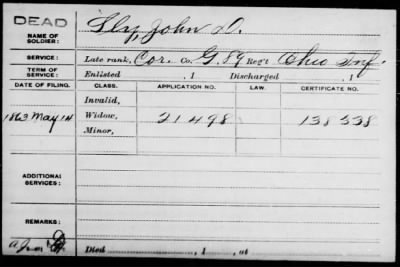 DEAD
NAME OF SOLDIER: Sly, John D.
SERVICE: Late rank, Cor. Co. G, 89 Reg't Ohio Inf.
TERM OF SERVICE: Enlisted , 1 Discharged , 1
DATE OF FILING. CLASS. APPLICATION NO. LAW. CERTIFICATE NO.
Invalid,
1863 May 14 Widow, 21498 138538
Minor,
ADDITIONAL SERVICES:
REMARKS:
Died , 1 , at